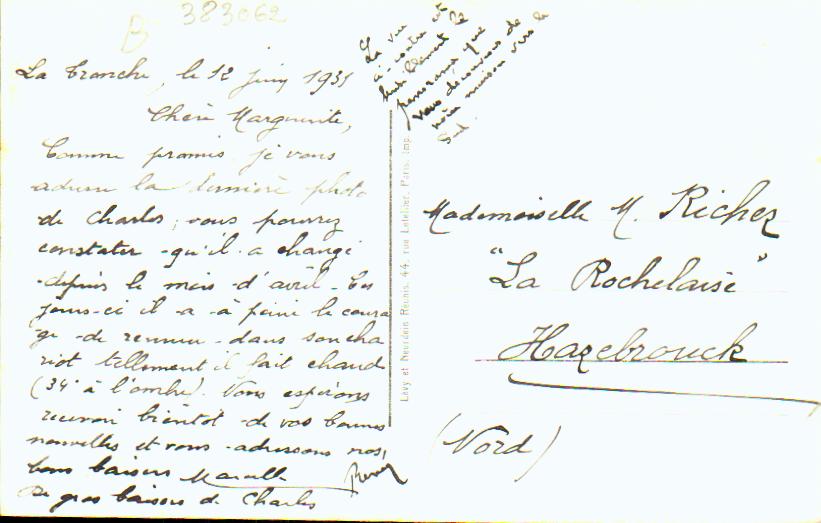 B 383062
La vue
ci-contre est
sensiblement le
panorama que
vous découvrirez de
notre maison vers le
Sud.
La Tranche, le 12 juin 1931
Chère Marguerite,
Comme promis je vous
adresse la dernière photo
de Charles, vous pourrez
constater qu'il a changé
depuis le mois d'avril. Ces
jours-ci il a à peine le coura
ge de remuer dans son cha
riot tellement il fait chaud
(34° à l'ombre). Nous espérons
recevoir bientôt de vos bonnes
nouvelles et vous adressons nos
bons baisers Marcelle Remy
De gros baisers de Charles
Lévy et Neurdein Réunis, 44, rue Letellier, Paris. Imp.
Mademoiselle M. Richez
"La Rochelaise"
Hazebrouck
(Nord)